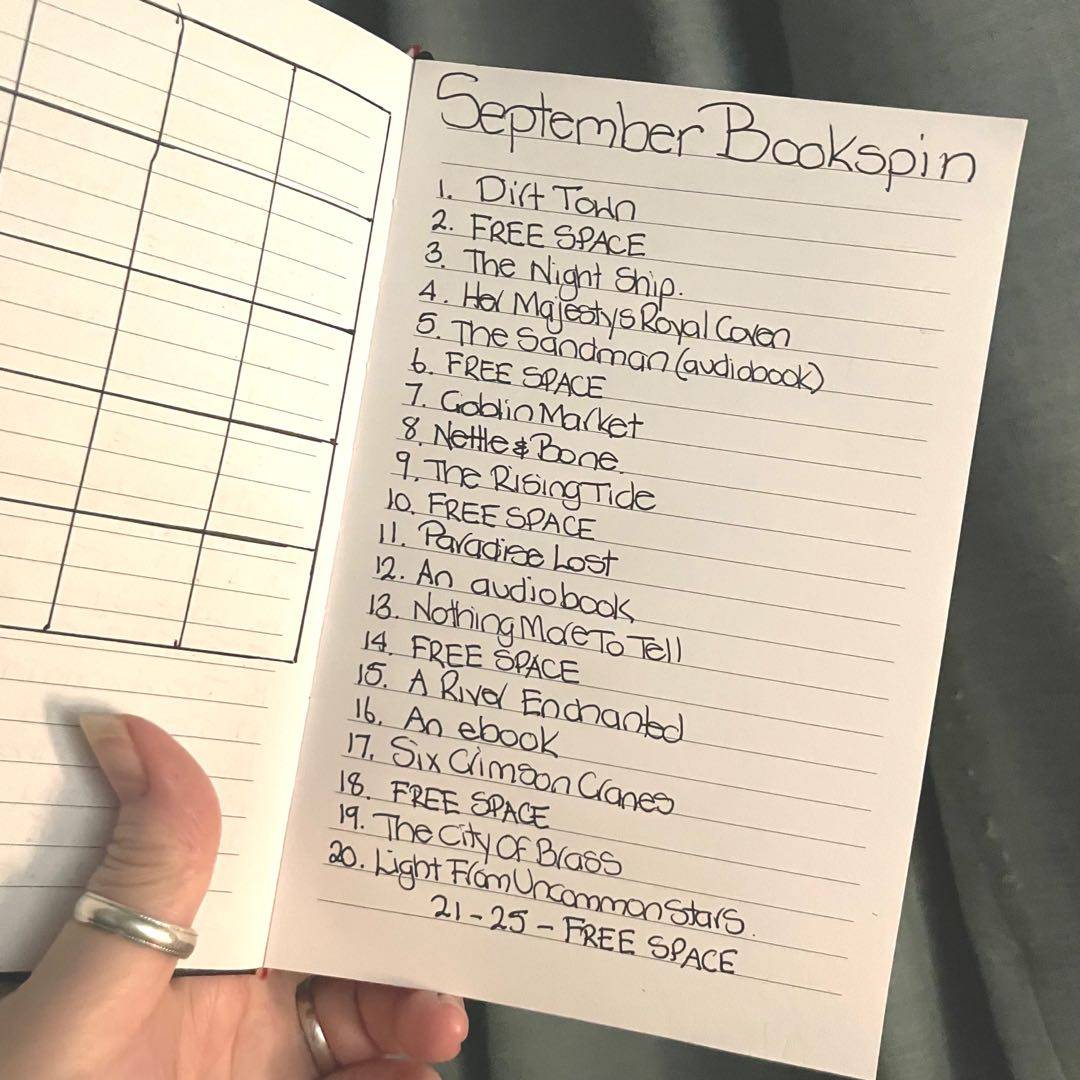 September Bookspin
1. Dirt Town
2. FREE SPACE
3. The Night Ship.
4. Her Majestys Royal Coven
5. The Sandman (audiobook)
6. FREE SPACE
7. Goblin Market
8. Nettle & Bone.
9. The Rising Tide
10. FREE SPACE
11. Paradise Lost
12. An audiobook
13. Nothing More To Tell
14. FREE SPACE
15. A River Enchanted
16. An ebook
17. Six Crimson Cranes
18. FREE SPACE
19. The City Of Brass
20. Light From Uncommon Stars.
21-25 - FREE SPACE